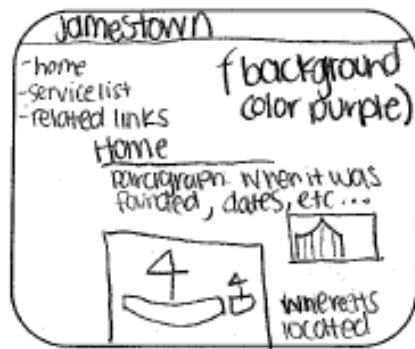 Jamestown
-home
-service list
-related links
(background
color purple)
Home
Paragraph: when it was
founded, dates, etc...
where its
located